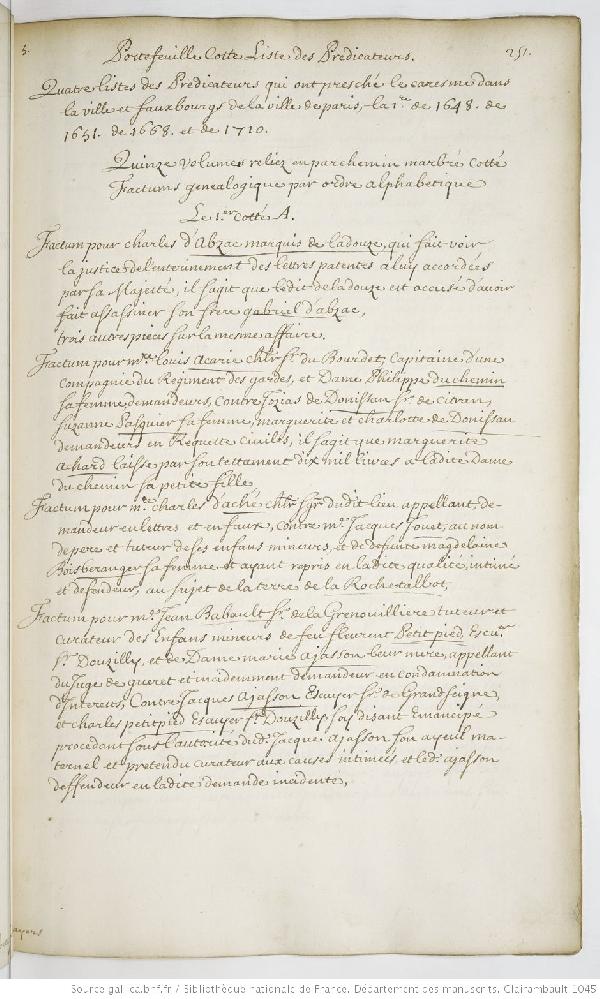 5. Portefeuille Cotte Liste des Predicateurs. 251.
Quatre listes des Predicateurs qui ont presché le caresme dans
la ville et fauxbourgs de la ville de paris, la 1re de 1648. de
1651. de 1668. et de 1710.
Quinze volumes reliez en parchemin marbré cotté
Factums genealogique par ordre alphabetique
Le 1er cotté A.
Factum pour charles d'Abzac marquis de ladouze, qui fait voir
la justice de l'enterinement des lettres patentes a luy accordées
par sa Majesté, il s'agit que ledit de ladouze est accusé d'avoir
fait assassiner son frere gabriel d'abzac,
trois autres pieces sur la mesme affaire.
Factum pour mre louis Acarie chlr sr. du Bourdet, Capitaine d'une
compagnie du Regiment des gardes, et Dame Philippe du chemin
sa femme demandeurs, contre Jozias de Donissan sr. de Citran,
Suzanne Pasquier sa femme, marguerite et charlotte de Donissan
demandeurs en Requette civille, il s'agit que marguerite
Achard laisse par son testament dix mil livres a ladite Dame
du chemin sa petite fille
Factum pour mre charles d'aché chlr sgr dudit lieu, appellant, de-
mandeur en lettres et en faux, contre me. Jacques Jouet, au nom
de pere et tuteur de ses enfans mineurs, et de defunte magdelaine
Boisberanger sa femme et ayant repris en ladite qualité, intimé
et defendeur, au sujet de la terre de la Roche tallbot,
Factum pour me. Jean Babault sr. de la Grenouilliere tuteur et
curateur des Enfans mineurs de feu fleurent Petit pied, Escuer
sr. Douzilly, et de Dame marie ajasson leur mere, appellant
du Juge de gueret et incidemment demandeur en condamnation
d'Interets, Contre Jacques Ajasson Escuyer sr. de Grandseigne,
et charles petitpied Escuyer sr. Douzilly soy disant Emancipé
procedant sous l'autorité dud. Jacque ajasson son ayeul ma-
ternel et pretendu curateur aux causes intimées, et led. ajasson
deffendeur en ladite demande incidente,
Source gallica.bnf.fr / Bibliothèque nationale de France. Département des manuscrits. Clairambault 1045